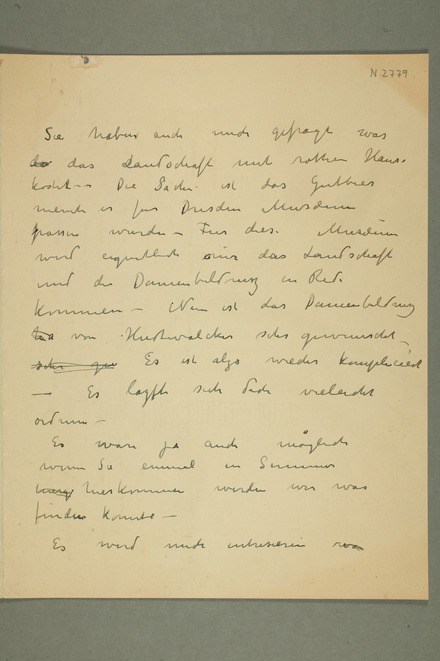 N.2779
Sie haben auch mich gefragt was
das Landschaft mit rothen Haus
kostet — Die Sache ist das
meint es für Dresden Museum
passen wurde — Fur dies Museum
wird eigentlich nur das Landschaft
und die Damenbildung in Rede
kommen — Nun ist das Damenbildung
von Hudtwalcker sehr gewunscht —
Es ist also wieder kompliciert
— Es sich doch vieleicht
ordnen —
Es ware ja auch möglich
wenn Sie einmal in Sommer
herkommen wurden wir was
finden konnte —
Es wird mich interesieren